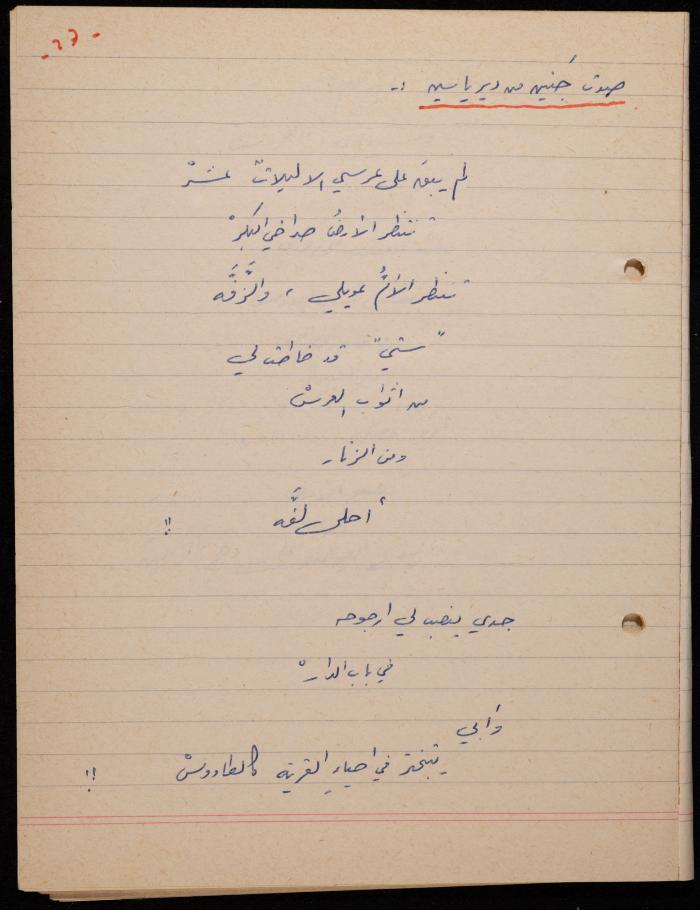 - ٢٦ -
صوت جَنين من دير ياسين :-
لم يبقَ على عرسي الا ليلاتٌ عشرْ
تنتظر الأرضُ صداحي البكرْ
تنتظر الأمُّ عويلي ، والزَّفَّه
"ستي" قد خاطت لي
من اثواب العرسْ
ومن الزنار
أحلى لَفَّه !!
جدي ينصب لي ارجوحه
في باب الدارْ
وَأبي
يتبختر في احياءِ القرية كالطاووسْ !!